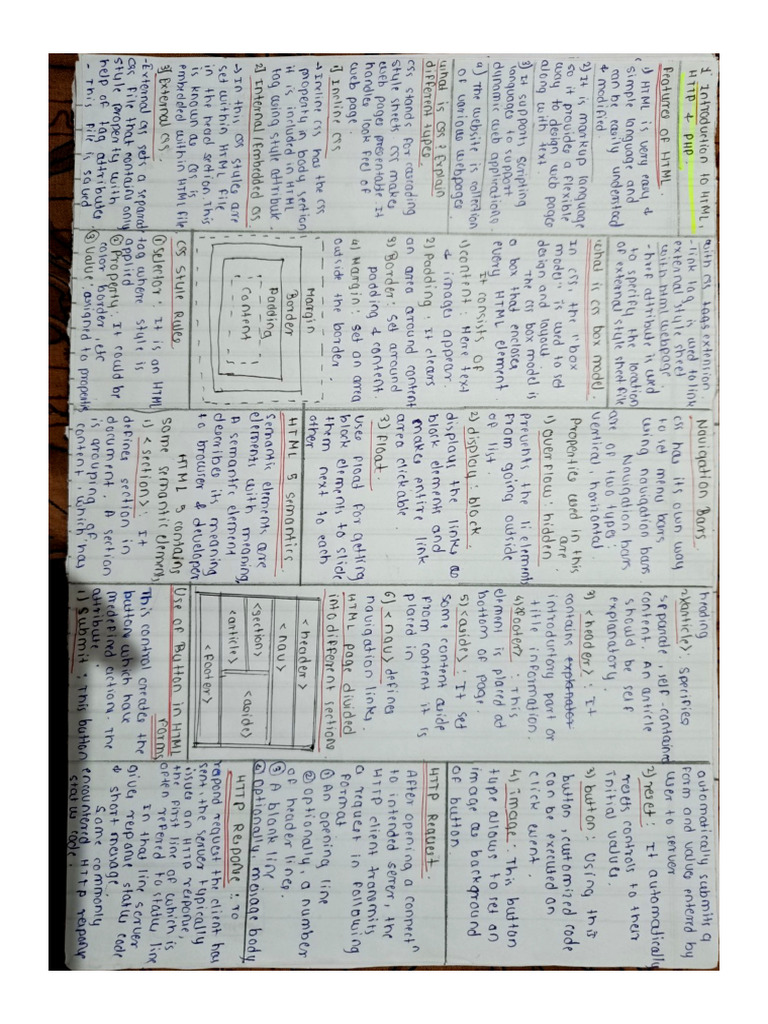 1' Introduction to HTML,
HTTP & PHP
Features of HTML
1) HTML is very easy &
simple language and
can be easily understood
& modified
2) It is markup language
so it provides a flexible
way to design web pages
along with text.
3) It supports scripting
languages to support
dynamic web applications
4) The website is collection
of various webpages
what is css? Explain
different types
css stands for cascading
style sheets css makes
web pages presentable. It
handles look feel of
web page.
1] Inline css
→ Inline css has the css
property in body section
it is included in HTML
tag using style attribute
2] Internal/Embedded css
→ In this css styles are
set within HTML file
in the head section. This
is known as css is
embedded within HTML file
3] External css
- External css sets a separate
css file that contains only
style property with
help of tag attributes
- This file is saved
with css tags extension.
- link tag is used to link
external style sheet
with html webpage.
- href attribute is used
to specify the location
of external style sheet file
what is css box model
In css, the "box
model" is used to set
design and layout
The css box model is
a box that encloses
every HTML element.
It consists of
1) content: Here text
& images appear.
2) Padding: It clears
an area around content
3) Border: set around
padding & content
4) Margin: set an area
outside the border.
Margin
Border
Padding
Content
CSS Style Rules
① selector: It is an HTML
tag where style is
applied
② Property: It could be
color border etc
③ Value: assigned to property
Navigation Bars
css has its own way
to set menu bars
using navigation bars
Navigation bars
are of two types:
vertical, horizontal
Properties used in this
are
1) overflow: hidden
prevents the li elements
from going outside
of list.
2) display: block
displays the links as
block elements and
makes entire link
area clickable
3) float
uses float for getting
block elements to slide
them next to each
other
HTML 5 semantics
semantic elements are
elements with meaning
A semantic element
describes its meaning
to browser & developer
HTML 5 contains
some semantic elements
1) <section>: It
defines section in
document. A section
is grouping of
content, which has
heading
2) <article>: specifies
separate, self-contained
content. An article
should be self
explanatory.
3) <header>: It
contains
introductory part or
title information.
4) <footer>: This
element is placed at
bottom of page.
5) <aside>: It set
some content aside
from content it is
placed in
6) <nav> defines
navigation links.
HTML page divided
into different sections
<header>
<nav>
<section>
<article>
<aside>
<footer>
Use of Button in HTML
forms
This control creates the
buttons which have
predefined action. The
attribute
1) submit: This button
automatically submits a
form and values entered by
user to server
2) reset: It automatically
resets controls to their
initial values.
3) button: Using this
button, customized code
can be executed on
click event.
4) image: This button
type allows to set an
image as background
of button.
HTTP Request
After opening a connectn
to intended server, the
HTTP client transmits
a request in following
format
① An opening line
② optionally, a number
of header lines.
③ A blank line
④ optionally, message body
HTTP Response: To
respond request the client has
sent, the server typically
issues an HTTP response,
the first line of which is
often referred to status line
In that line server
gives response status code
& short message.
Some commonly
encountered HTTP response
status code: